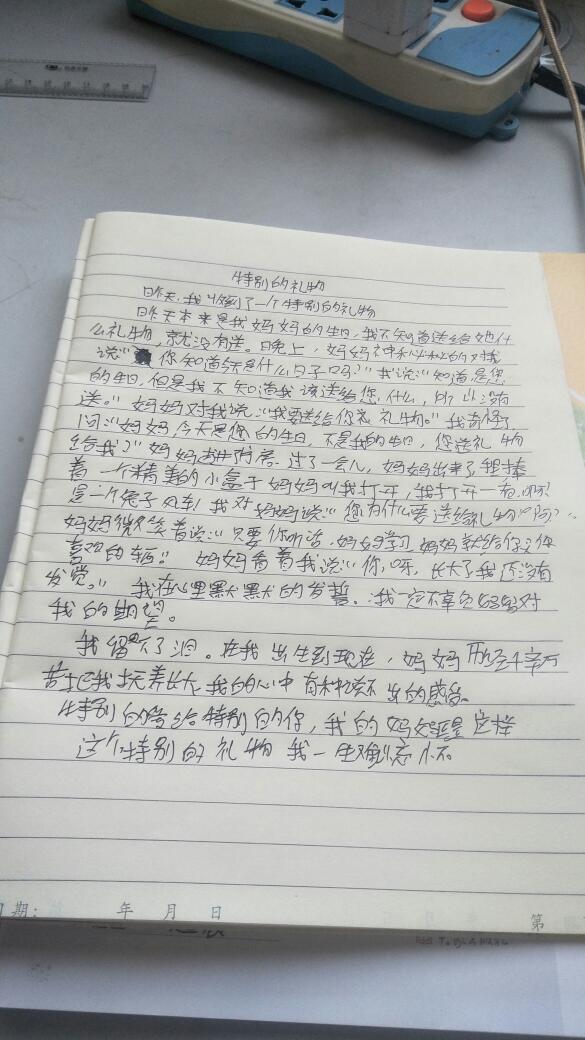 特别的礼物
昨天,我收到了一个特别的礼物
昨天本来是我妈妈的生日,我不知道送给她什
么礼物,就没有送。晚上,妈妈神秘秘的对我
说:"你知道今天是什么日子吗?"我说:"知道是您
的生日,但是我不知道我该送给您,什么,所以没有
送。"妈妈对我说:"我要送给你 礼物。"我奇怪了
问:"妈妈,今天是您的生日,不是我的生日,您送礼物
给我?"妈妈 进房。过了一会儿,妈妈出来了,捧
着一个精美的小盒子妈妈叫我打开,我打开一看,
是一个兔子 我对妈妈说:"您为什么要送给礼物 啊?"
妈妈微笑着说:"只要你听话,好好学习,妈妈就给你买你
喜观的 "妈妈看着我说:"你呀,长大了我还没有
发觉。"我在心里默默的发誓:我一定不辜负妈妈对
我的期望。
我留下了泪。在我出生到现在,妈妈历经千辛万
苦把我抚养长大,我的心中有种说不出的感
特别的 给特别的你,我的妈妈 是这样
这个特别的礼物我一生难忘
日期: 年 月 日
第